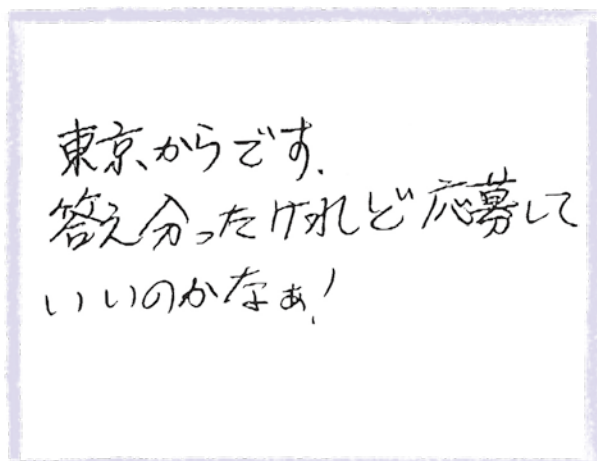 東京からです.
答え分ったけれど応募して
いいのかなぁ!